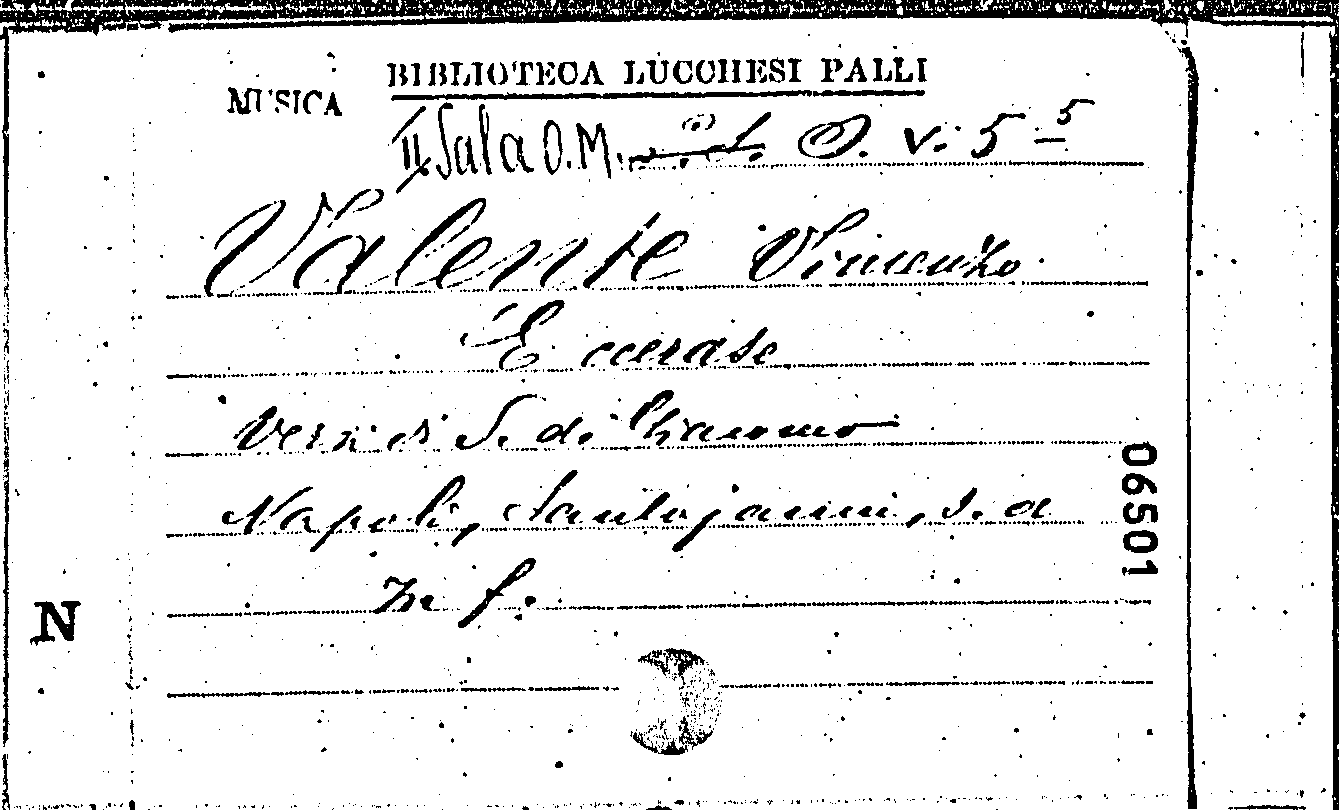 BIBLIOTECA LUCCHESI PALLI
MUSICA
II Sala O.M. O. V. 5 5
Valente Vincenzo
'E ccerase
Versi di S. di Giacomo
Napoli, Santojanni, s. d
In f.
06501
N